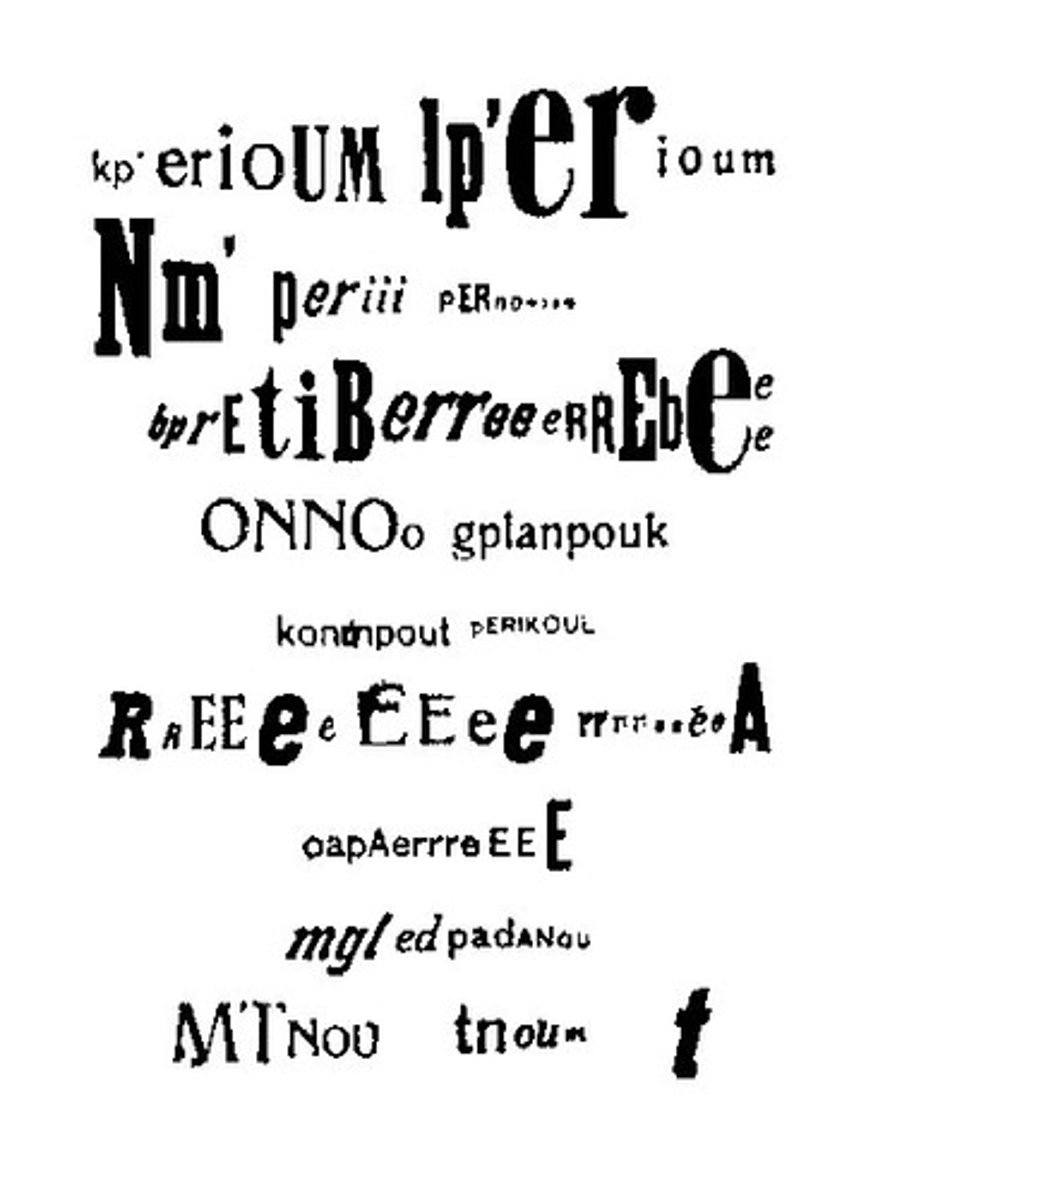 kp' erioUM lp'er ioum
Nm' periii pERno
bprEtiBerree eRREbEeee
ONNOo gplanpouk
konmpout pERIKOUL
RREEe e EEee rrr
oapAerrre EE E
mgl ed padANou
M'TNoU tnoum t